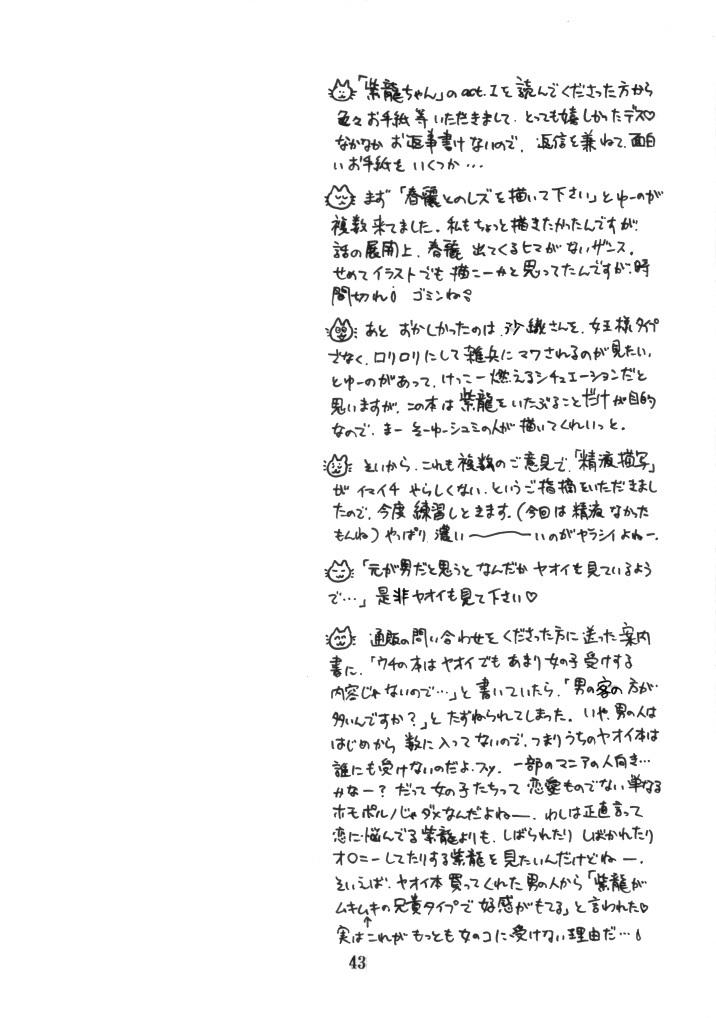 「紫龍ちゃん」のact.Iを読んでくださった方から
色々お手紙等いただきまして、とっても嬉しかったデス♡
なかなかお返事書けないので、返信を兼ねて、面白
いお手紙をいくつか…
まず「春麗とのレズを描いて下さい」とゆーのが
複数来てました。私もちょっと描きたかったんですが、
話の展開上、春麗出てくるヒマがないザンス。
せめてイラストでも描こーかと思ってたんですが、時
間切れ! ゴミンね
あとおかしかったのは、沙織さんを、女王様タイプ
でなく、ロリロリにして雑兵にマワされるのが見たい、
とゆーのがあって、けっこー燃えるシチュエーションだと
思いますが、この本は紫龍をいたぶることだけが目的
なので、まーそーゆーシュミの人が描いてくれいっと。
そいから、これも複数のご意見で、「精液描写」
がイマイチやらしくない、というご指摘をいただきまし
たので、今度練習しときます。(今回は精液なかった
もんね)やっぱり濃い〜〜いのがヤラシイよねー。
「元が男だと思うとなんだかヤオイも見ているよう
で…」是非ヤオイも見て下さい♡
通販の問い合わせをくださった方に送った案内
書に、「ウチの本はヤオイでもあまり女の子受けする
内容じゃないので…」と書いていたら、「男の客の方が
多いんですか?」とたずねられてしまった。いや、男の人は
はじめから数に入ってないので、つまりうちのヤオイ本は
誰にも受けないのだよ、フッ。一部のマニアの人向き…
かなー?だって女の子たちって恋愛ものでない単なる
ホモポルノじゃダメなんだよねー。わしは正直言って
恋に悩んでる紫龍よりも、しばられたりしばかれたり
オ○ニーしてたりする紫龍を見たいんだけどねー。
そいえば、ヤオイ本買ってくれた男の人から「紫龍が
ムキムキの兄貴タイプで好感がもてる」と言われた♡
実はこれがもっとも女のコに受けない理由だ…!
43